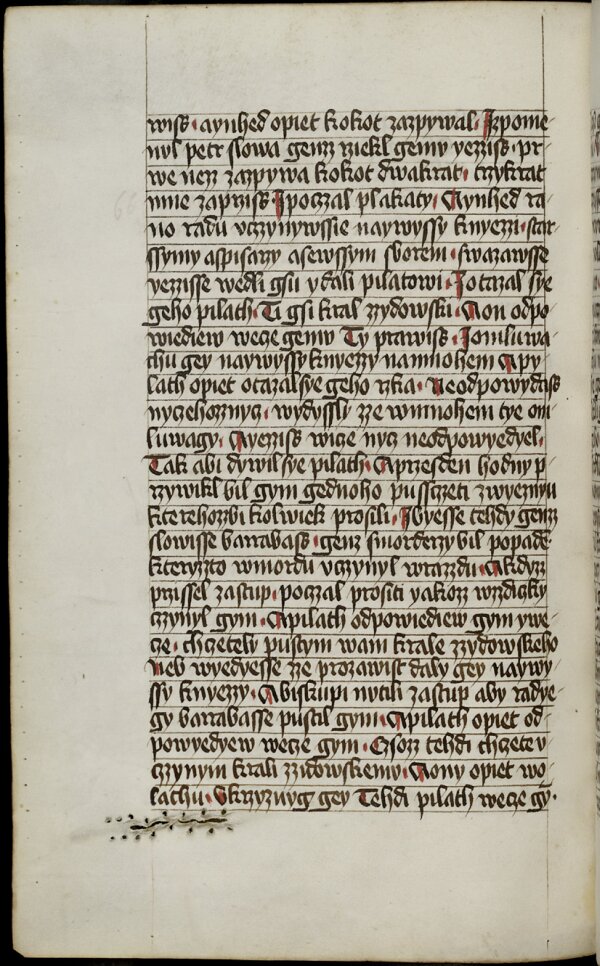 wiſs · aynhed opiet kokot zazpywal · Izpome-
nvl petr ſlowa genz rziekl gemv yezziſs · pr-
we nezz zazpywa kokot dwakrat · trzykrat
mne zaprziſs I poczal plakaty · Aynhed ra-
no radu vczynywſſie naywyſſy knyezzi · ſtar-
ſſymy aſpiſarzy aſewſſym ſborem · ſwazawſſe
yezziſſe wedli gſu ydali pilatowi · I otazal ſye
geho pilath · Ti gſi kral zzydowſki · Aon odpo-
wiediew wecze gemv Ty prawiſs · Iomluwa-
chu gey naywyſſy knyezzy namnohem Apy-
lath opiet otazal ſye geho rzka · Neodpowydaſs
nyczehozznycz · wydyſſly zze wmnohem tye om-
luwagy · Ayezziſs wicze nycz neodpowyedyel ·
Tak abi dywil ſye pilath · Aprzeſden hodny p-
rzywikl bil gym gednoho puſſczeti zwyeznyu
kterehozzbi kolwiek proſili · Ibyeſſe tehdy genz
ſlowiſſe barrabaſs · genz ſmorderzy bil popade-
kteryzto wmordu vczynyl wrazdu · Akdyz
przyſſel zaſtup · poczal proſiti yakozz wzdiczky
czynyl gym · Apilath odpowiediew gym ywe-
cze · chczetely puſtym wam krale zzydowſkeho
Neb wyedyeſſe zze prozawiſt daly gey naywy-
ſſy knyezzy · Abiſkupi nvtili zaſtup aby radye-
gy barrabaſſe puſtil gym · Apilath opiet od-
powyedyew wecze gym · Czſozz tehdi chczete v-
czynym krali zzidowſkemv · Aony opiet wo-
lachu · Vkrzyzuyg gey Tehdi pilath wecze gy̅ ·